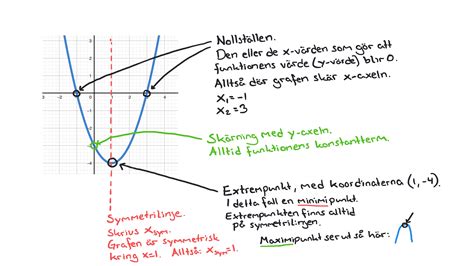 Nollställen.
Den eller de x-värden som gör att
funktionens värde (y-värde) blir 0.
Alltså där grafen skär x-axeln.
x₁=-1
x₂=3
Skärning med y-axeln.
Alltid funktionens konstantterm.
Extrempunkt, med koordinaterna (1,-4).
I detta fall en minimipunkt.
Extrempunkten finns alltid
på symmetrilinjen.
Maximipunkt ser ut så här:
Symmetrilinje.
Skrivs x_sym.
Grafen är symmetrisk
kring x=1. Alltså: x_sym=1.